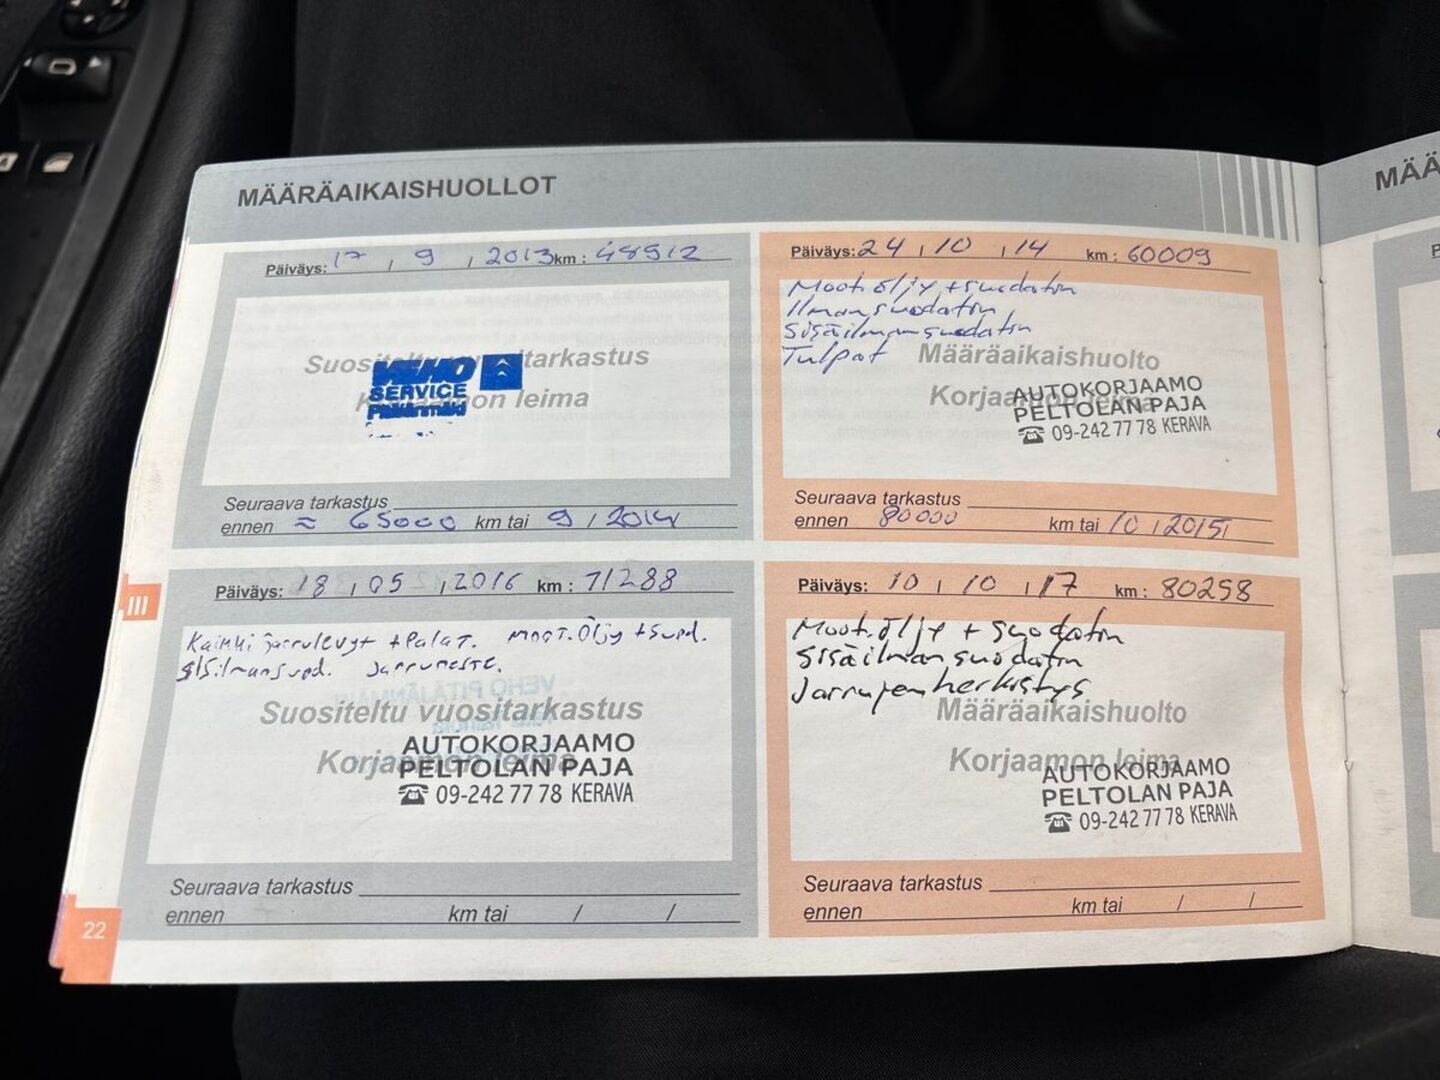 MÄÄRÄAIKAISHUOLLOT
Päiväys: 17 / 9 / 2013 km: 48912
Suositeltu vuositarkastus
VEHO
SERVICE
Pitäjänmäki
Korjaamon leima
Seuraava tarkastus
ennen ≈ 65000 km tai 9 / 2014
Päiväys: 24 / 10 / 14 km: 60009
Moot.öljy + suodatin
Ilmansuodatin
Sisäilmansuodatin
Tulpat
Määräaikaishuolto
Korjaamon leima
AUTOKORJAAMO
PELTOLAN PAJA
☎ 09-242 77 78 KERAVA
Seuraava tarkastus
ennen 80000 km tai 10 / 2015
Päiväys: 18 / 05 / 2016 km: 71288
Kaikki jarrulevyt + Palat. moot.Öljy + suod.
SISilmansuod. Jarruneste.
Suositeltu vuositarkastus
Korjaamon leima
AUTOKORJAAMO
PELTOLAN PAJA
☎ 09-242 77 78 KERAVA
Seuraava tarkastus
ennen km tai / /
Päiväys: 10 / 10 / 17 km: 80258
Moot.öljy + suodatin
Sisäilman suodatin
Jarrujen herkistys
Määräaikaishuolto
Korjaamon leima
AUTOKORJAAMO
PELTOLAN PAJA
☎ 09-242 77 78 KERAVA
Seuraava tarkastus
ennen km tai / /
III
22
MÄÄ